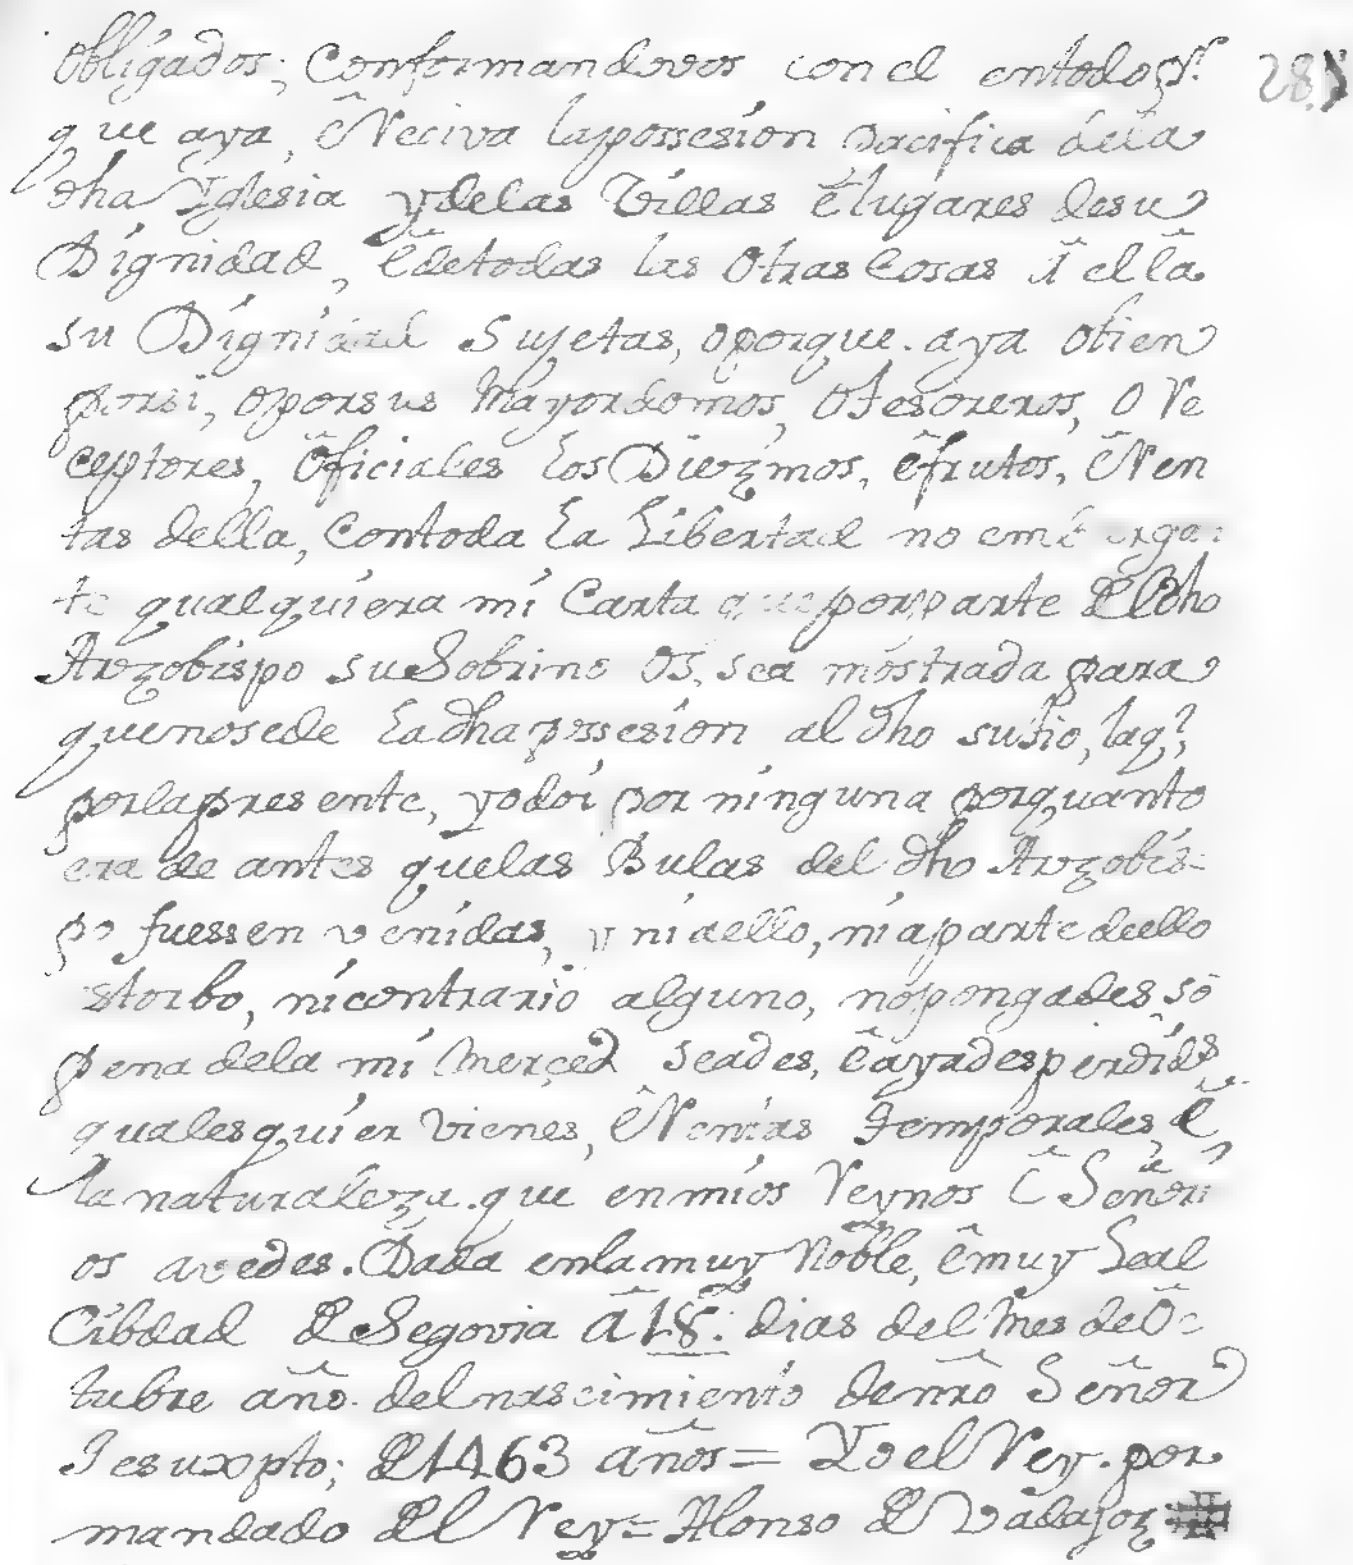 obligados; Conformandovos con el entodo p.r 285
que aya, ê Reciva lapossesion pacifica dela
dha Yglesia ydelas Villas ê lugares desu
Dignidad, êdetodas las Otras Cosas â ella
su Dignidad Sujetas, oporque aya otien
porsi, oporsus Mayordomos, oTesoreros, o Re
ceptores, Oficiales los Diezmos, êfrutos, êRen
tas della, Contoda la Libertad no embargan
te qualquiera mi Carta que porparte Del dho
Arzobispo suSobrino os sea mostrada para
quenosede la dha possesion al dho sutio, laq.l
porlapresente, yodoi por ninguna porquanto
era de antes quelas Bulas del dho Arzobis-
po fuessen venidas, y ni aello, niaparte deello
storbo, nicontrario alguno, nopongades, so
pena dela mi Merçed seades, êayadesperdido
qualesquier vienes, êRentas Temporales, ê
la naturaleza que enmios Reynos ê Señori
os avedes. Dada enlamuy Noble, êmuy Leal
Cibdad De Segovia â 18: dias del Mes deOc-
tubre año del nascimiento denro Señor
Jesuxpto; De1463 años = Yo el Rey. por
mandado Del Rey = Alonso De Vadajoz #